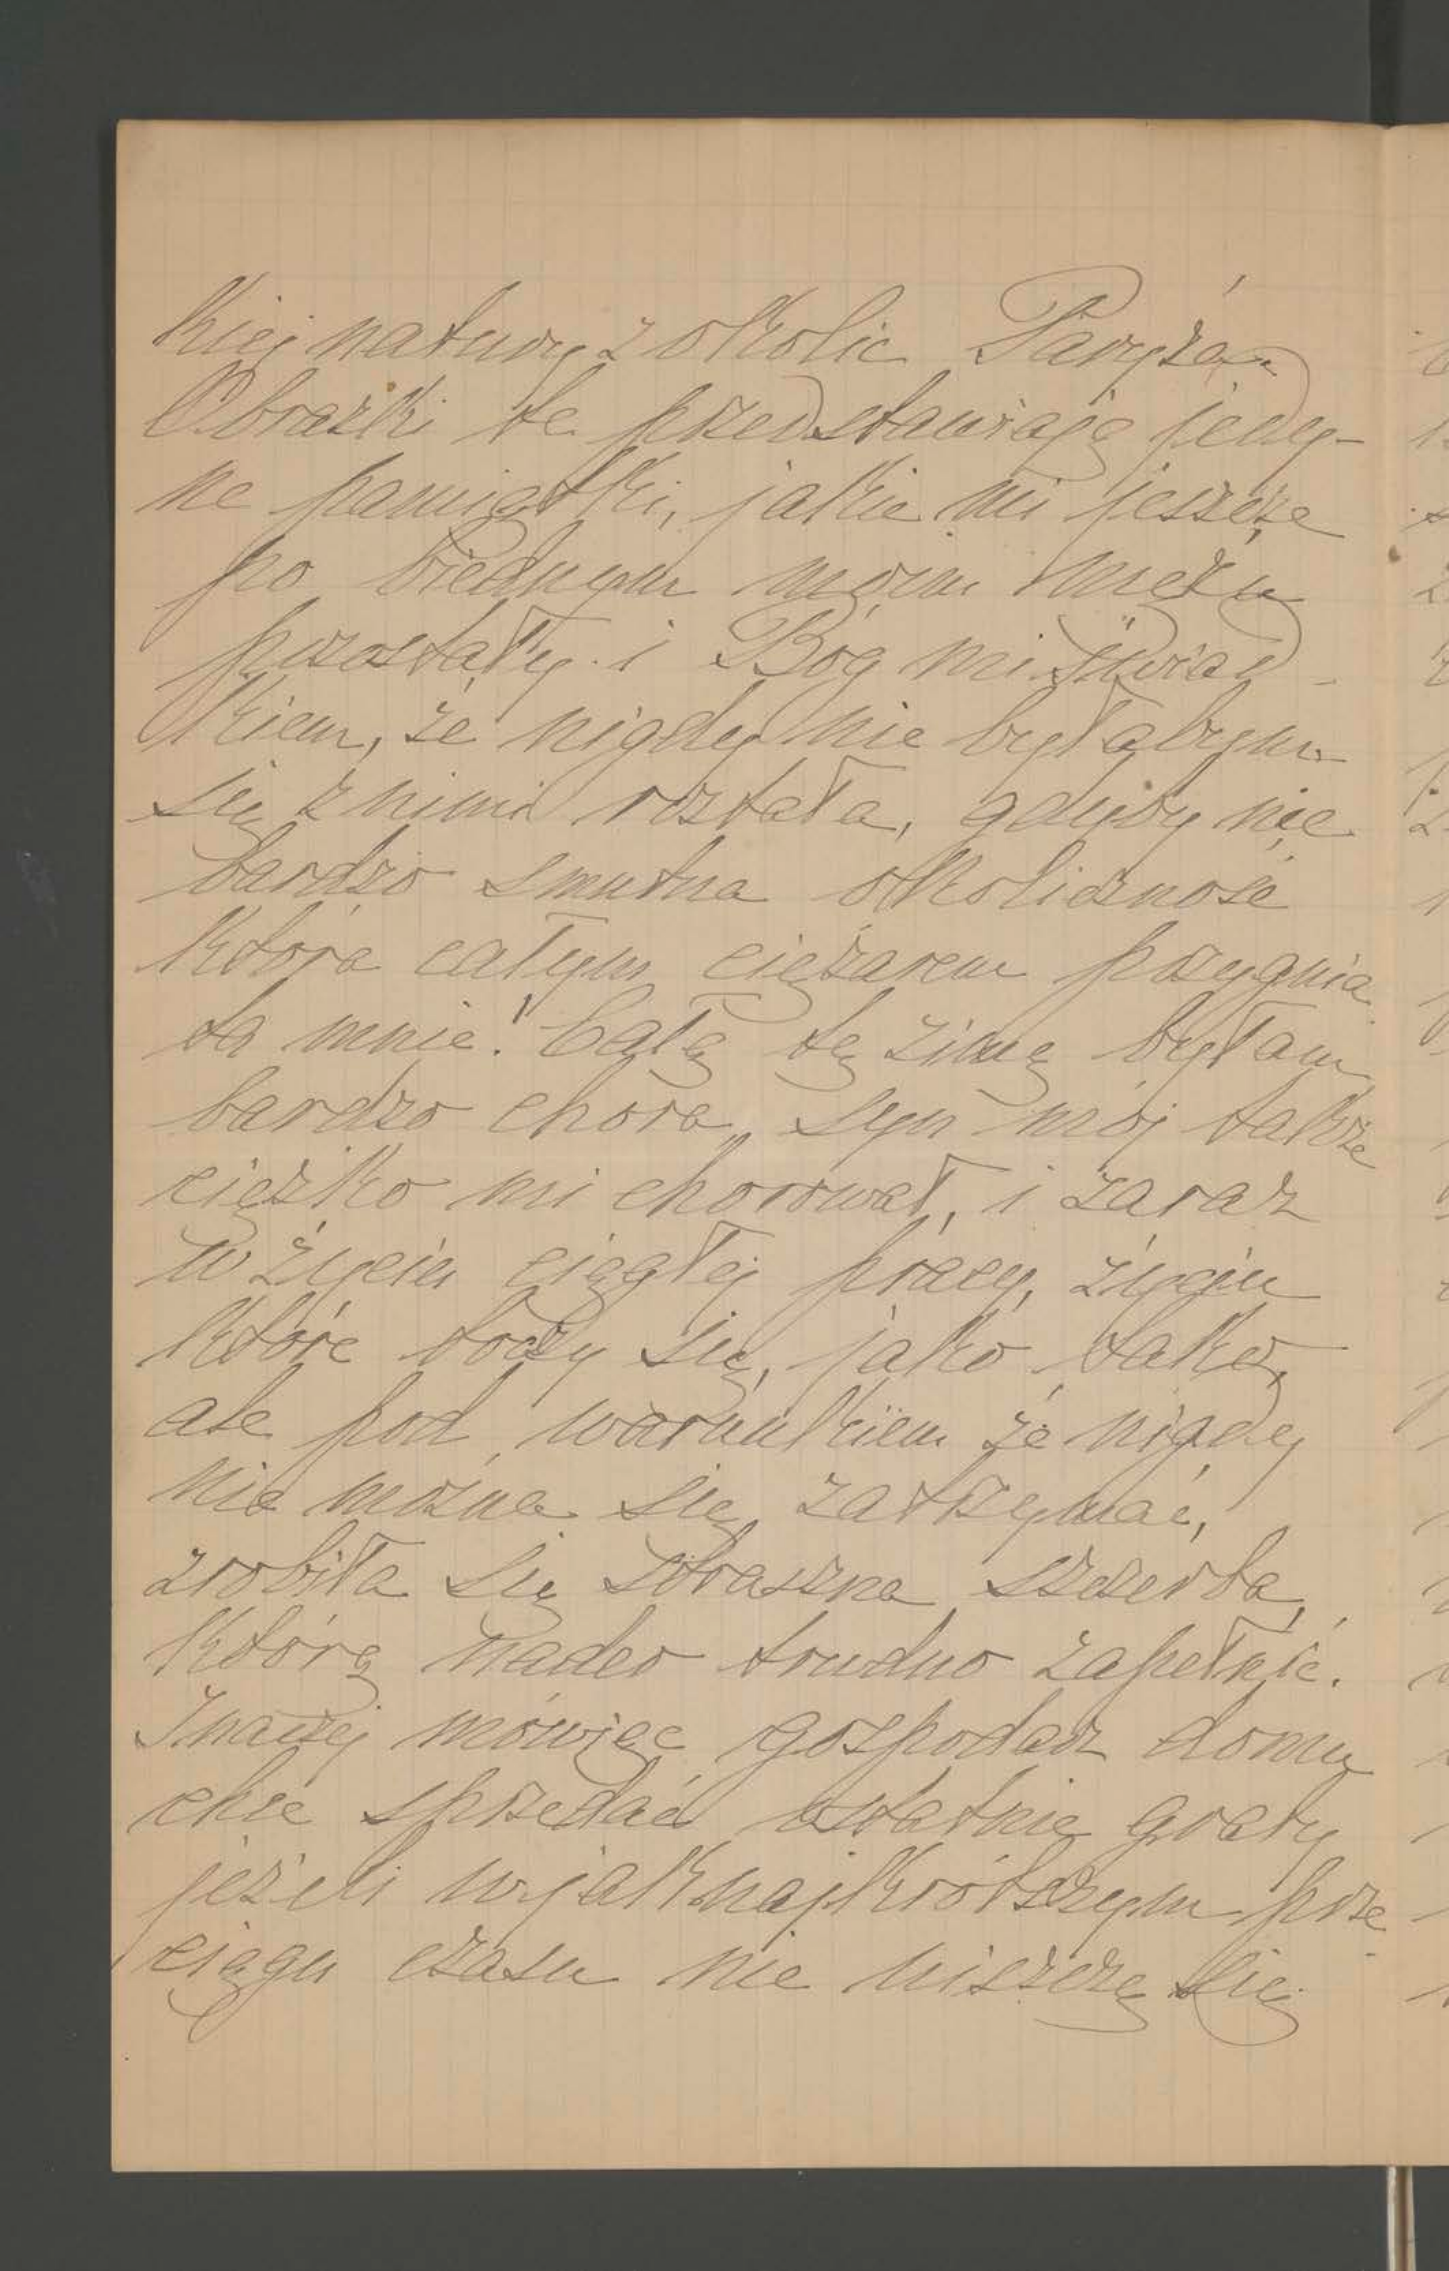 kiej natury z okolic Paryża.
Obrazki te przedstawiają jedy-
ne pamiątki, jakie mi jeszcze
po biednym moim mężu
pozostały i Bóg mi świad-
kiem, że nigdy nie byłabym
się z nimi rozstała, gdyby nie
bardzo smutna okoliczność
która całym ciężarem przygnia
ta mnie! Całą tę zimę byłam
bardzo chora, syn mój także
ciężko mi chorował, i zaraz
w życiu ciągłéj pracy, życiu
które toczy się, jako tako,
ale pod warunkiem że nigdy
nie można się zatrzymać,
zrobiła się straszna szczerba,
którą nader trudno zapełnić.
Inaczej mówiąc gospodarz domu
chce sprzedać ostatnie graty
jeżeli w jaknajkrótszym prze
ciągu czasu nie uiszczę się